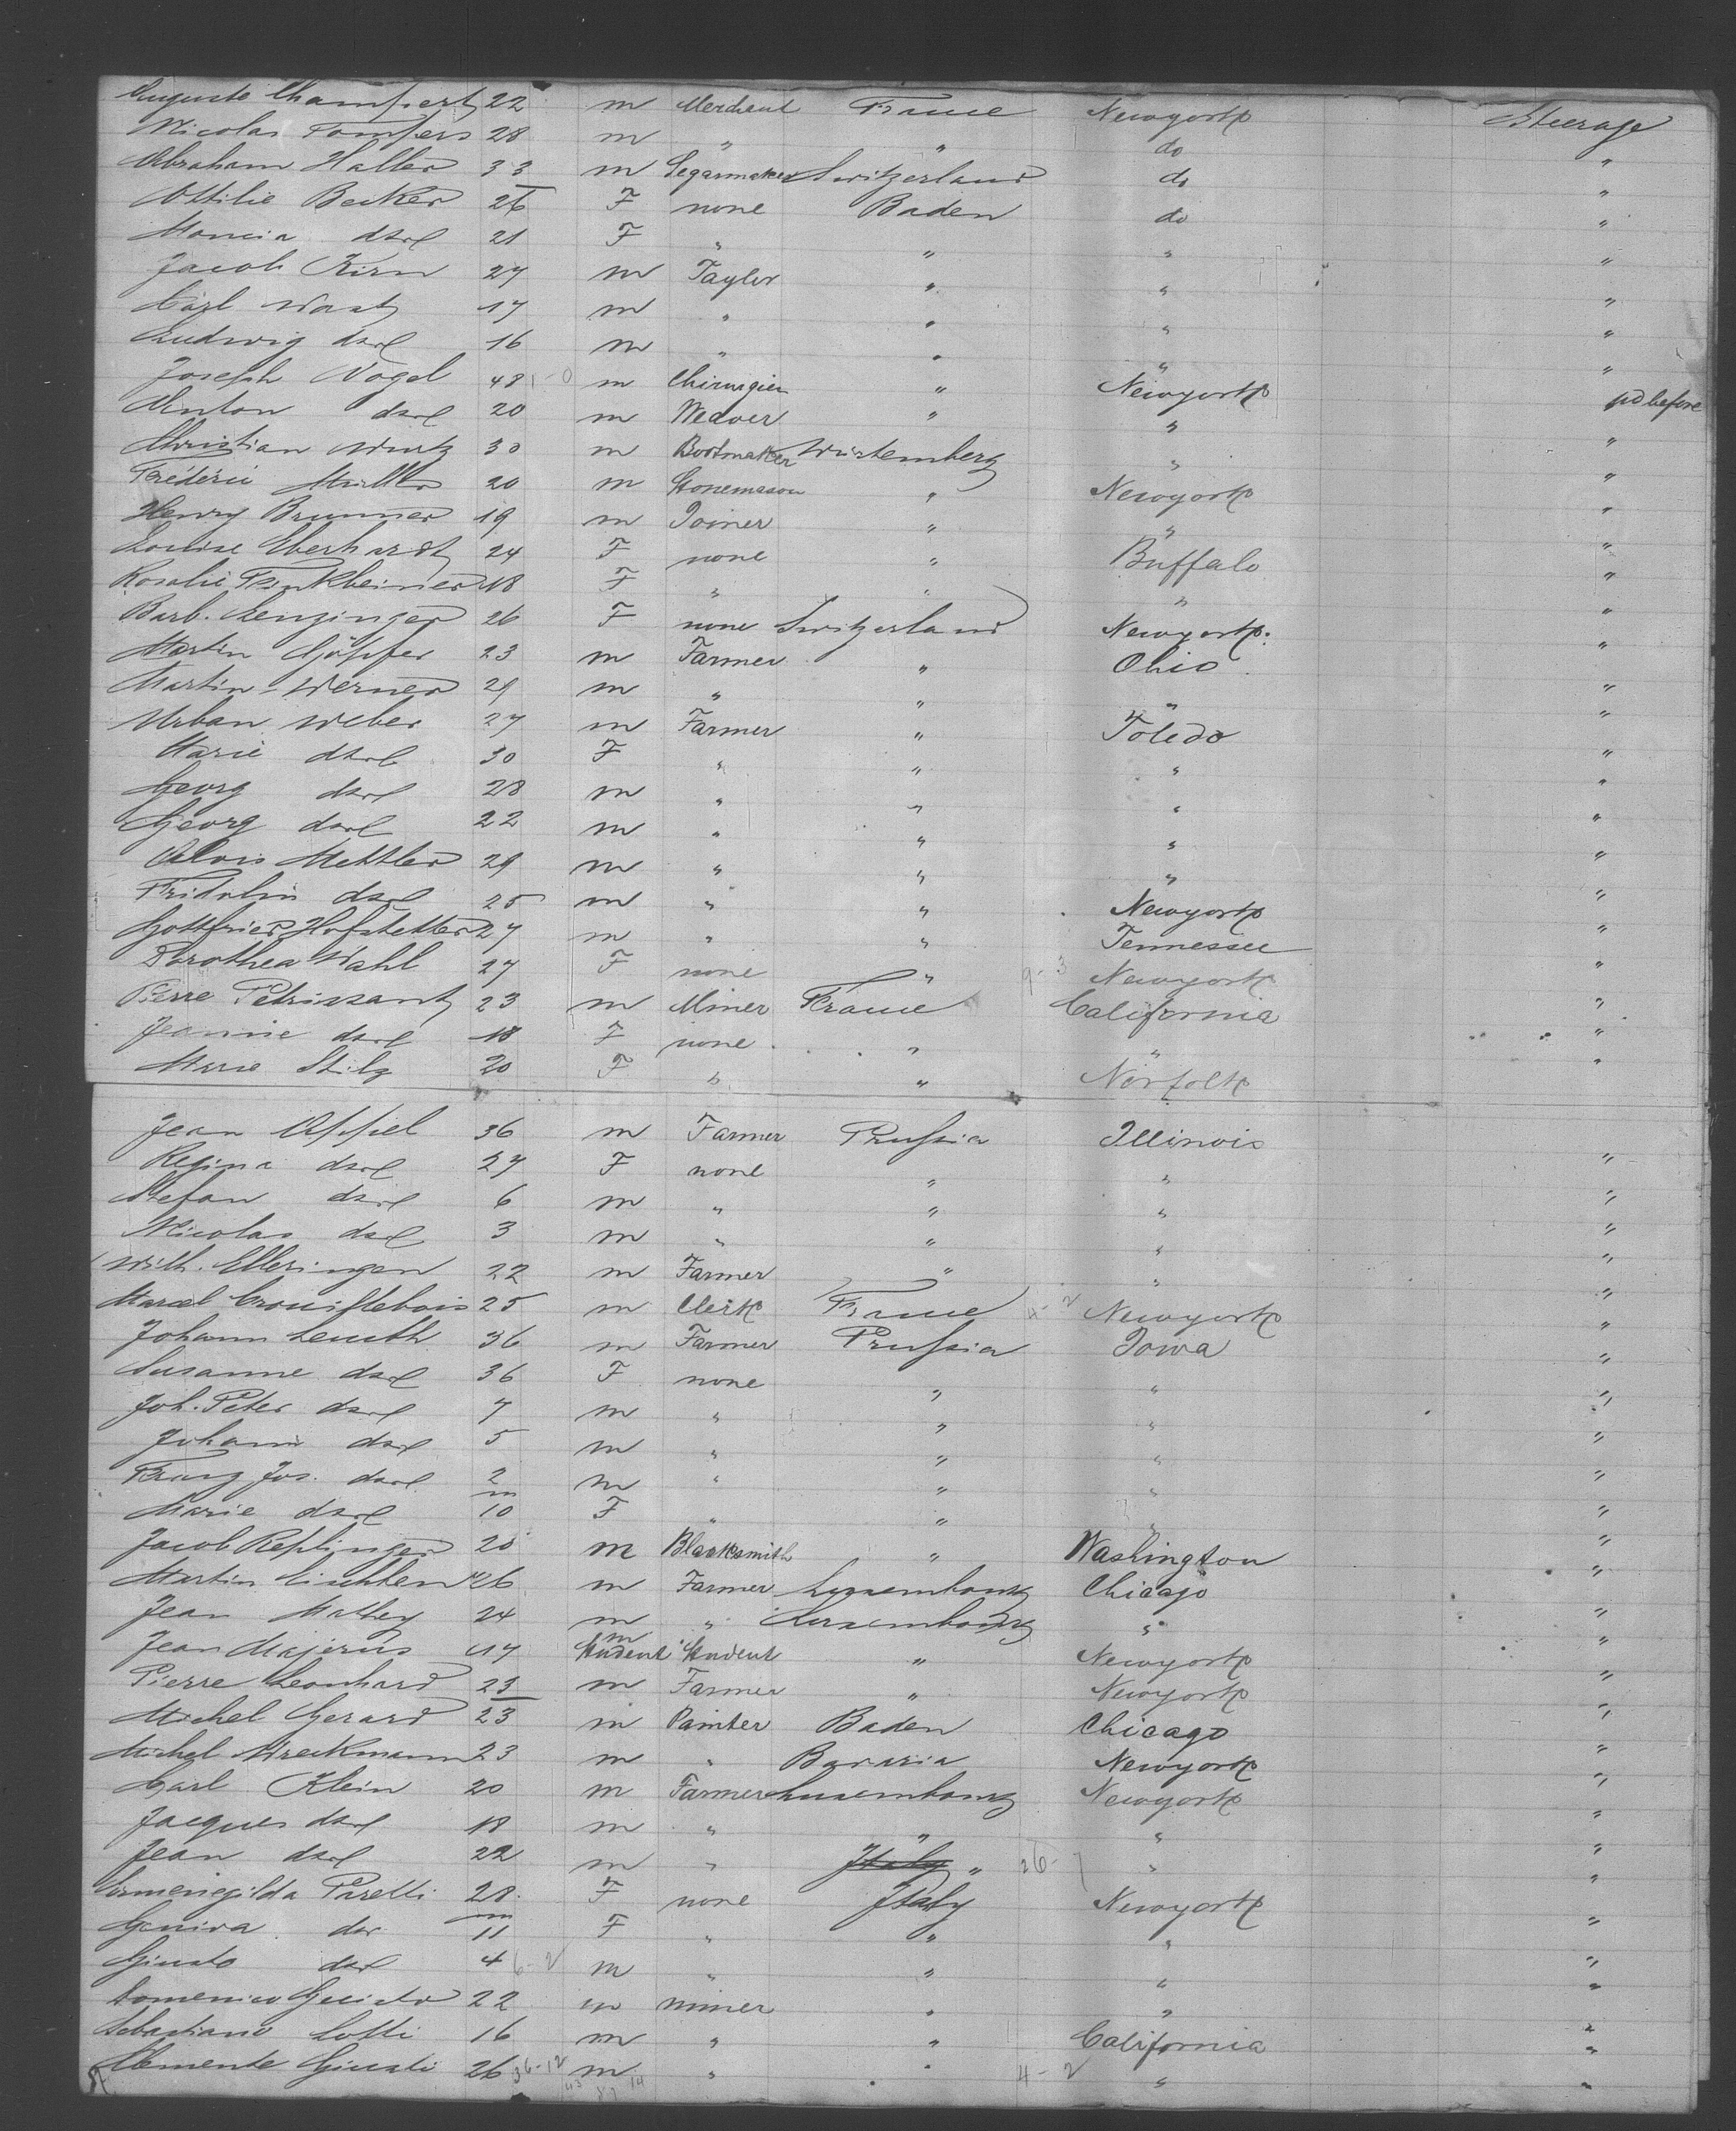 Auguste Champert 22 m Merchant France Newyork Steerage
Nicolas Pompers 28 m " " do "
Abraham Haller 33 m Segarmaker Switzerland do "
Ottilie Becker 26 F none Baden do "
dsrl 21 F " " " "
Jacob Kirn 27 m Taylor " " "
Carl Wartz 17 m " " " "
Ludwig dsrl 16 m " " " "
Joseph Vogel 48 m Chirurgien " Newyork pd before
Anton dsrl 20 m Weaver " " "
Christian Wurtz 30 m Bootmaker Würtemberg " "
Fréderic Müller 20 m Stonemason " Newyork "
Henry Brunner 19 m Joiner " " "
Louise Eberhardt 24 F none " Buffalo "
Rosalie Finkbeiner 18 F " " " "
Barb. Lenzinger 26 F none Switzerland Newyork. "
Martin Göpfer 23 m Farmer " Ohio "
Martin Werner 29 m " " " "
Urban Weber 27 m Farmer " Toledo "
Marie dsrl 30 F " " " "
Georg dsrl 28 m " " " "
Georg dsrl 22 m " " " "
Alois Mettler 29 m " " " "
Fridolin dsrl 25 m " " Newyork "
Gottfried Hofstetter 27 m " " Tennessee "
Dorothea Wahl 27 F none " 9-3 Newyork "
Pierre Petrissantz 23 m Miner France California "
Jeannie dsrl 18 F none " " "
Marie Stilz 20 F " " Norfolk "
Jean Appel 36 m Farmer Prussia Illinois
Regina dsrl 27 F none " " "
Stefan dsrl 6 m " " " "
Nicolas dsrl 3 m " " " "
Wilh. Elleringen 22 m Farmer " " "
Marcel 25 m Clerk France 4-2 Newyork "
Johann Leuth 36 m Farmer Prussia Iowa "
Susanne dsrl 36 F none " " "
Joh. Peter dsrl 7 m " " " "
Johann dsrl 5 m " " " "
Franz Jos. dsrl 2 m " " " "
Marie dsrl m 10 F " " " "
Jacob Replinger 20 m Blacksmith " Washington "
Martin 26 m Farmer Luxembourg Chicago "
Jean Mathey 24 m " Luxembourg " "
Jean Majerus 17 m Student Student " Newyork "
Pierre Leonhard 23 m Farmer " Newyork "
Michel Gerard 23 m Painter Baden Chicago "
Michel Wreckmann 23 m " Bavaria Newyork "
Carl Klein 20 m Farmer Luxembourg Newyork "
Jacques dsrl 18 m " " " "
Jean dsrl 22 m " Italy " 26-7 " "
Ermenegilda Paretti 28 F none Italy Newyork "
dsr m 11 F " " " "
Giusto dsrl 4 6-2 m " " " "
Domenico 22 m miner " " "
Sebastiano Lotti 16 m " " California "
Clemente Giusti 26 36-12 m " " 4-2 " "